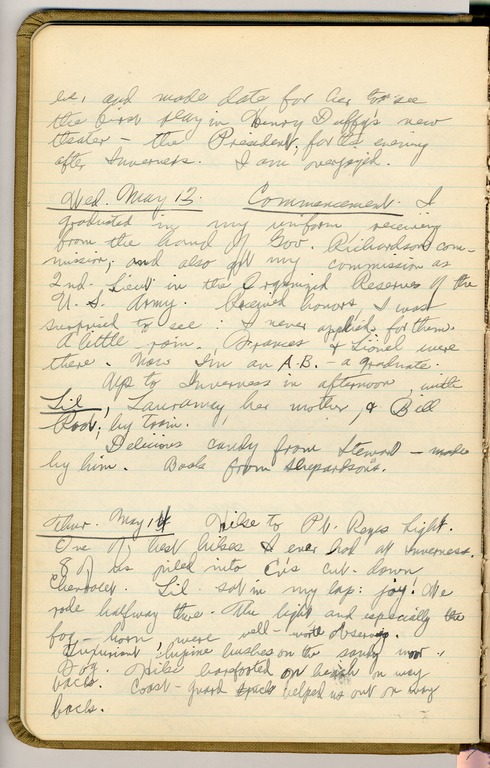 be, and made date for her to see
the first play in Henry Duffy's new
theater – the President, for the evening
after Inverness. I am overjoyed.
Wed. May 13. Commencement. I
graduated in my uniform receiving
from the hand of Gov. Richardson com-
mission, and also got my commission as
2nd. Lieut in the Organized Reserves of the
U. S. Army. Received honors, I was
surprised to see: I never applied for them.
A little rain. Frances & Lionel were
there. Now I'm an A.B. – a graduate.
Up to Inverness in afternoon, with
Lil, her mother, & Bill
by train.
Delicious candy from Steward – made
by him. Book from Shepardson's.
Thur. May 14 Hike to Pt. Reyes Light.
One of best hikes I ever had at Inverness.
8 of us piled into cut-down
Chevrolet. Lil sat in my lap: joy! We
rode halfway there. The light and especially the
fog-horn, were well-worth observing.
Luxuriant lupine bushes on the sandy
Fog. Hike barefooted on beach on way
back. Coast-guard truck helped us out on way
back.